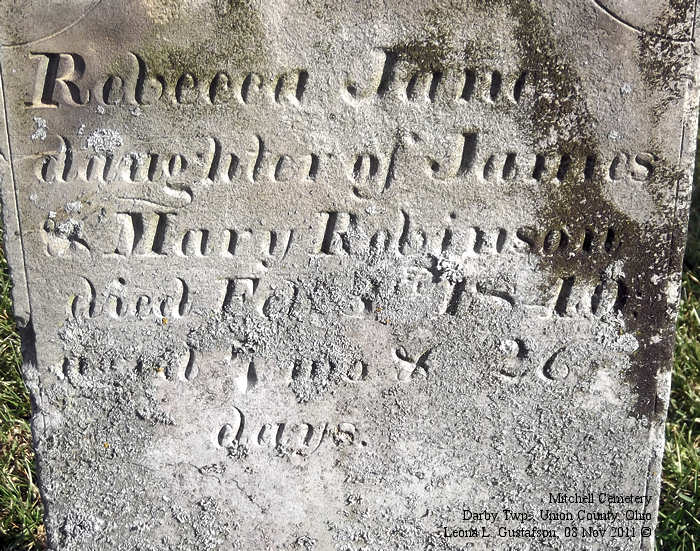 Rebecca Jane
daughter of James
& Mary Robinson
died Feb. th 1840.
aged mo & 26
days.
Mitchell Cemetery
Darby Twp., Union County, Ohio
Leona L. Gustafson, 03 Nov 2011 ©